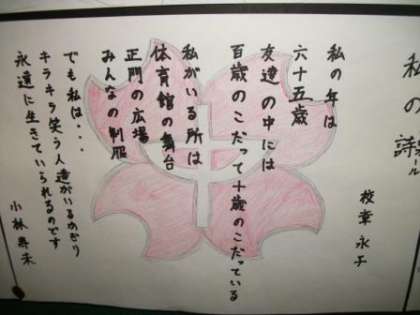 私の詩
校章 永子
私の年は
六十五歳
友達の中には
百歳のこだって十歳のこだっている
私がいる所は
体育館の舞台
正門の広場
みんなの制服
でも私は・・・
キラキラ笑う人達がいるかぎり
永遠に生きていられるのです
小林